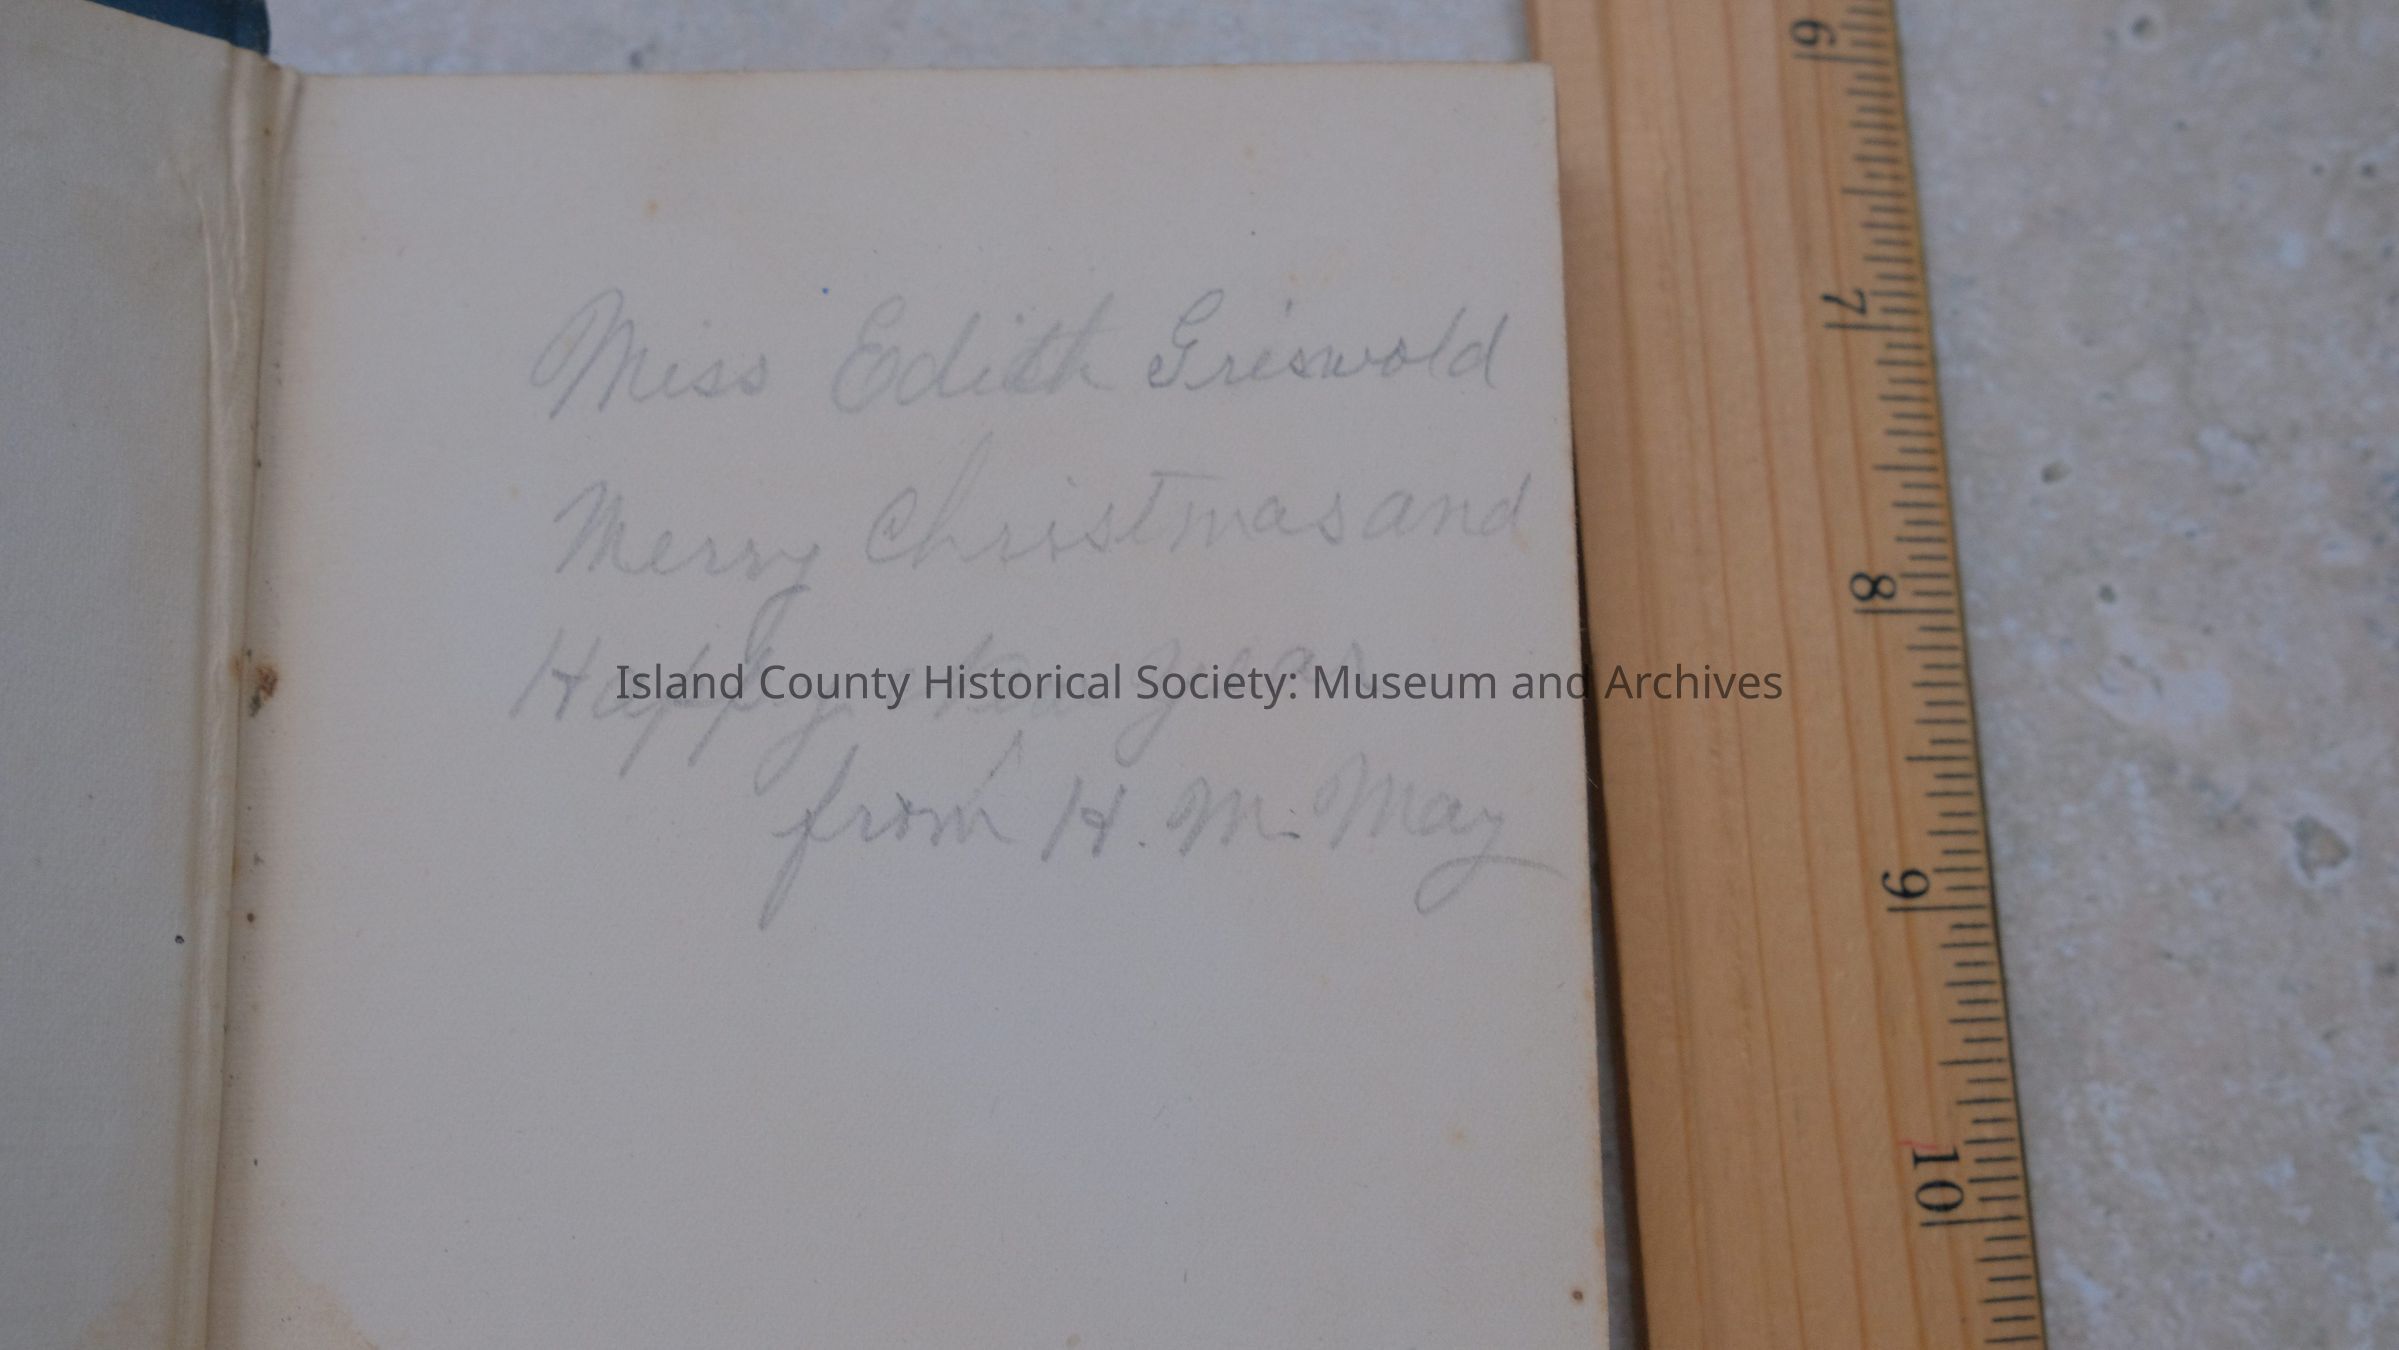 Miss Edith Griswold
Merry Christmas and
Happy New year
Island County Historical Society: Museum and Archives
from H. M. May
6
7
8
9
10